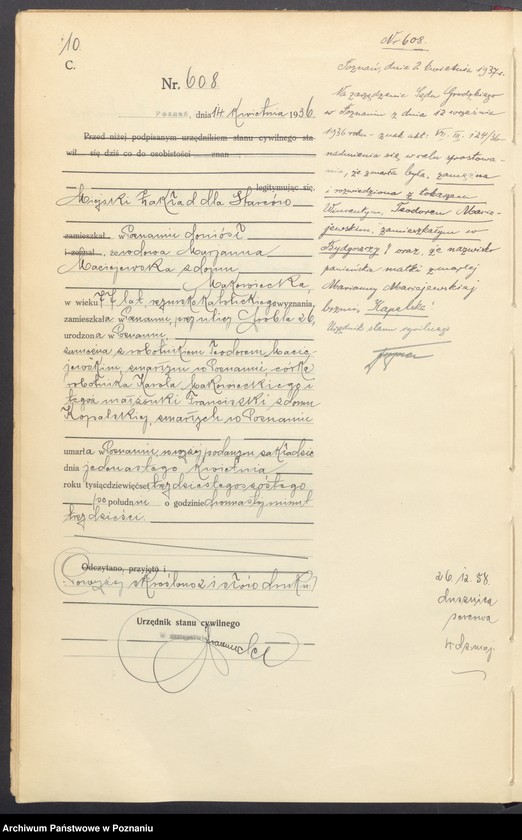 10.
C.
Nr. 608
Poznań, dnia 14 Kwietnia 1936.
Przed niżej podpisanym urzędnikiem stanu cywilnego sta-
wił się dziś co do osobistości znan
legitymując się
Miejski Zakład dla Starców
zamieszkał w Poznaniu doniósł
i zeznał, że wdowa Marjanna
Maciejewska z domu
Makowiecka,
w wieku 77 lat, rzymsko katolickiego wyznania,
zamieszkała w Poznaniu, przy ulicy Grobla 26,
urodzona w Poznaniu
zamężna z robotnikiem Teodorem Macie-
jewskim, zmarłym w Poznaniu, córka
robotnika Karola Makowieckiego i
tegoż małżonki Franciszki z domu
Kopalskiej, zmarłych w Poznaniu
umarła w Poznaniu, wyżej podanym zakładzie
dnia jedenastego kwietnia
roku tysiącdziewięćset trzydziestego szóstego
po południu o godzinie minut
trzydzieści.
Odczytano, przyjęto i
Powyżej skreślono 21 słów druku.
Urzędnik stanu cywilnego
Nr 608.
Poznań, dnia 2 kwietnia 1937 r.
Na zarządzenie Sądu Grodzkiego
w Poznaniu z dnia 12 września
1936 roku - znak akt: VII. III. 124/36
nadmienia się w celu sprostowa-
nia, że zmarła była zamężna
i rozwiedziona z
Wincentym, Teodorem Macie-
jewskim, zamieszkałym w
Bydgoszczy / oraz, że nazwisko
panieńskie matki zmarłej
Marianny Maciejewskiej
brzmi, Kapelski.
Urzędnik stanu cywilnego
26. 12. 58.
dusznica
sercowa
Archiwum Państwowe w Poznaniu